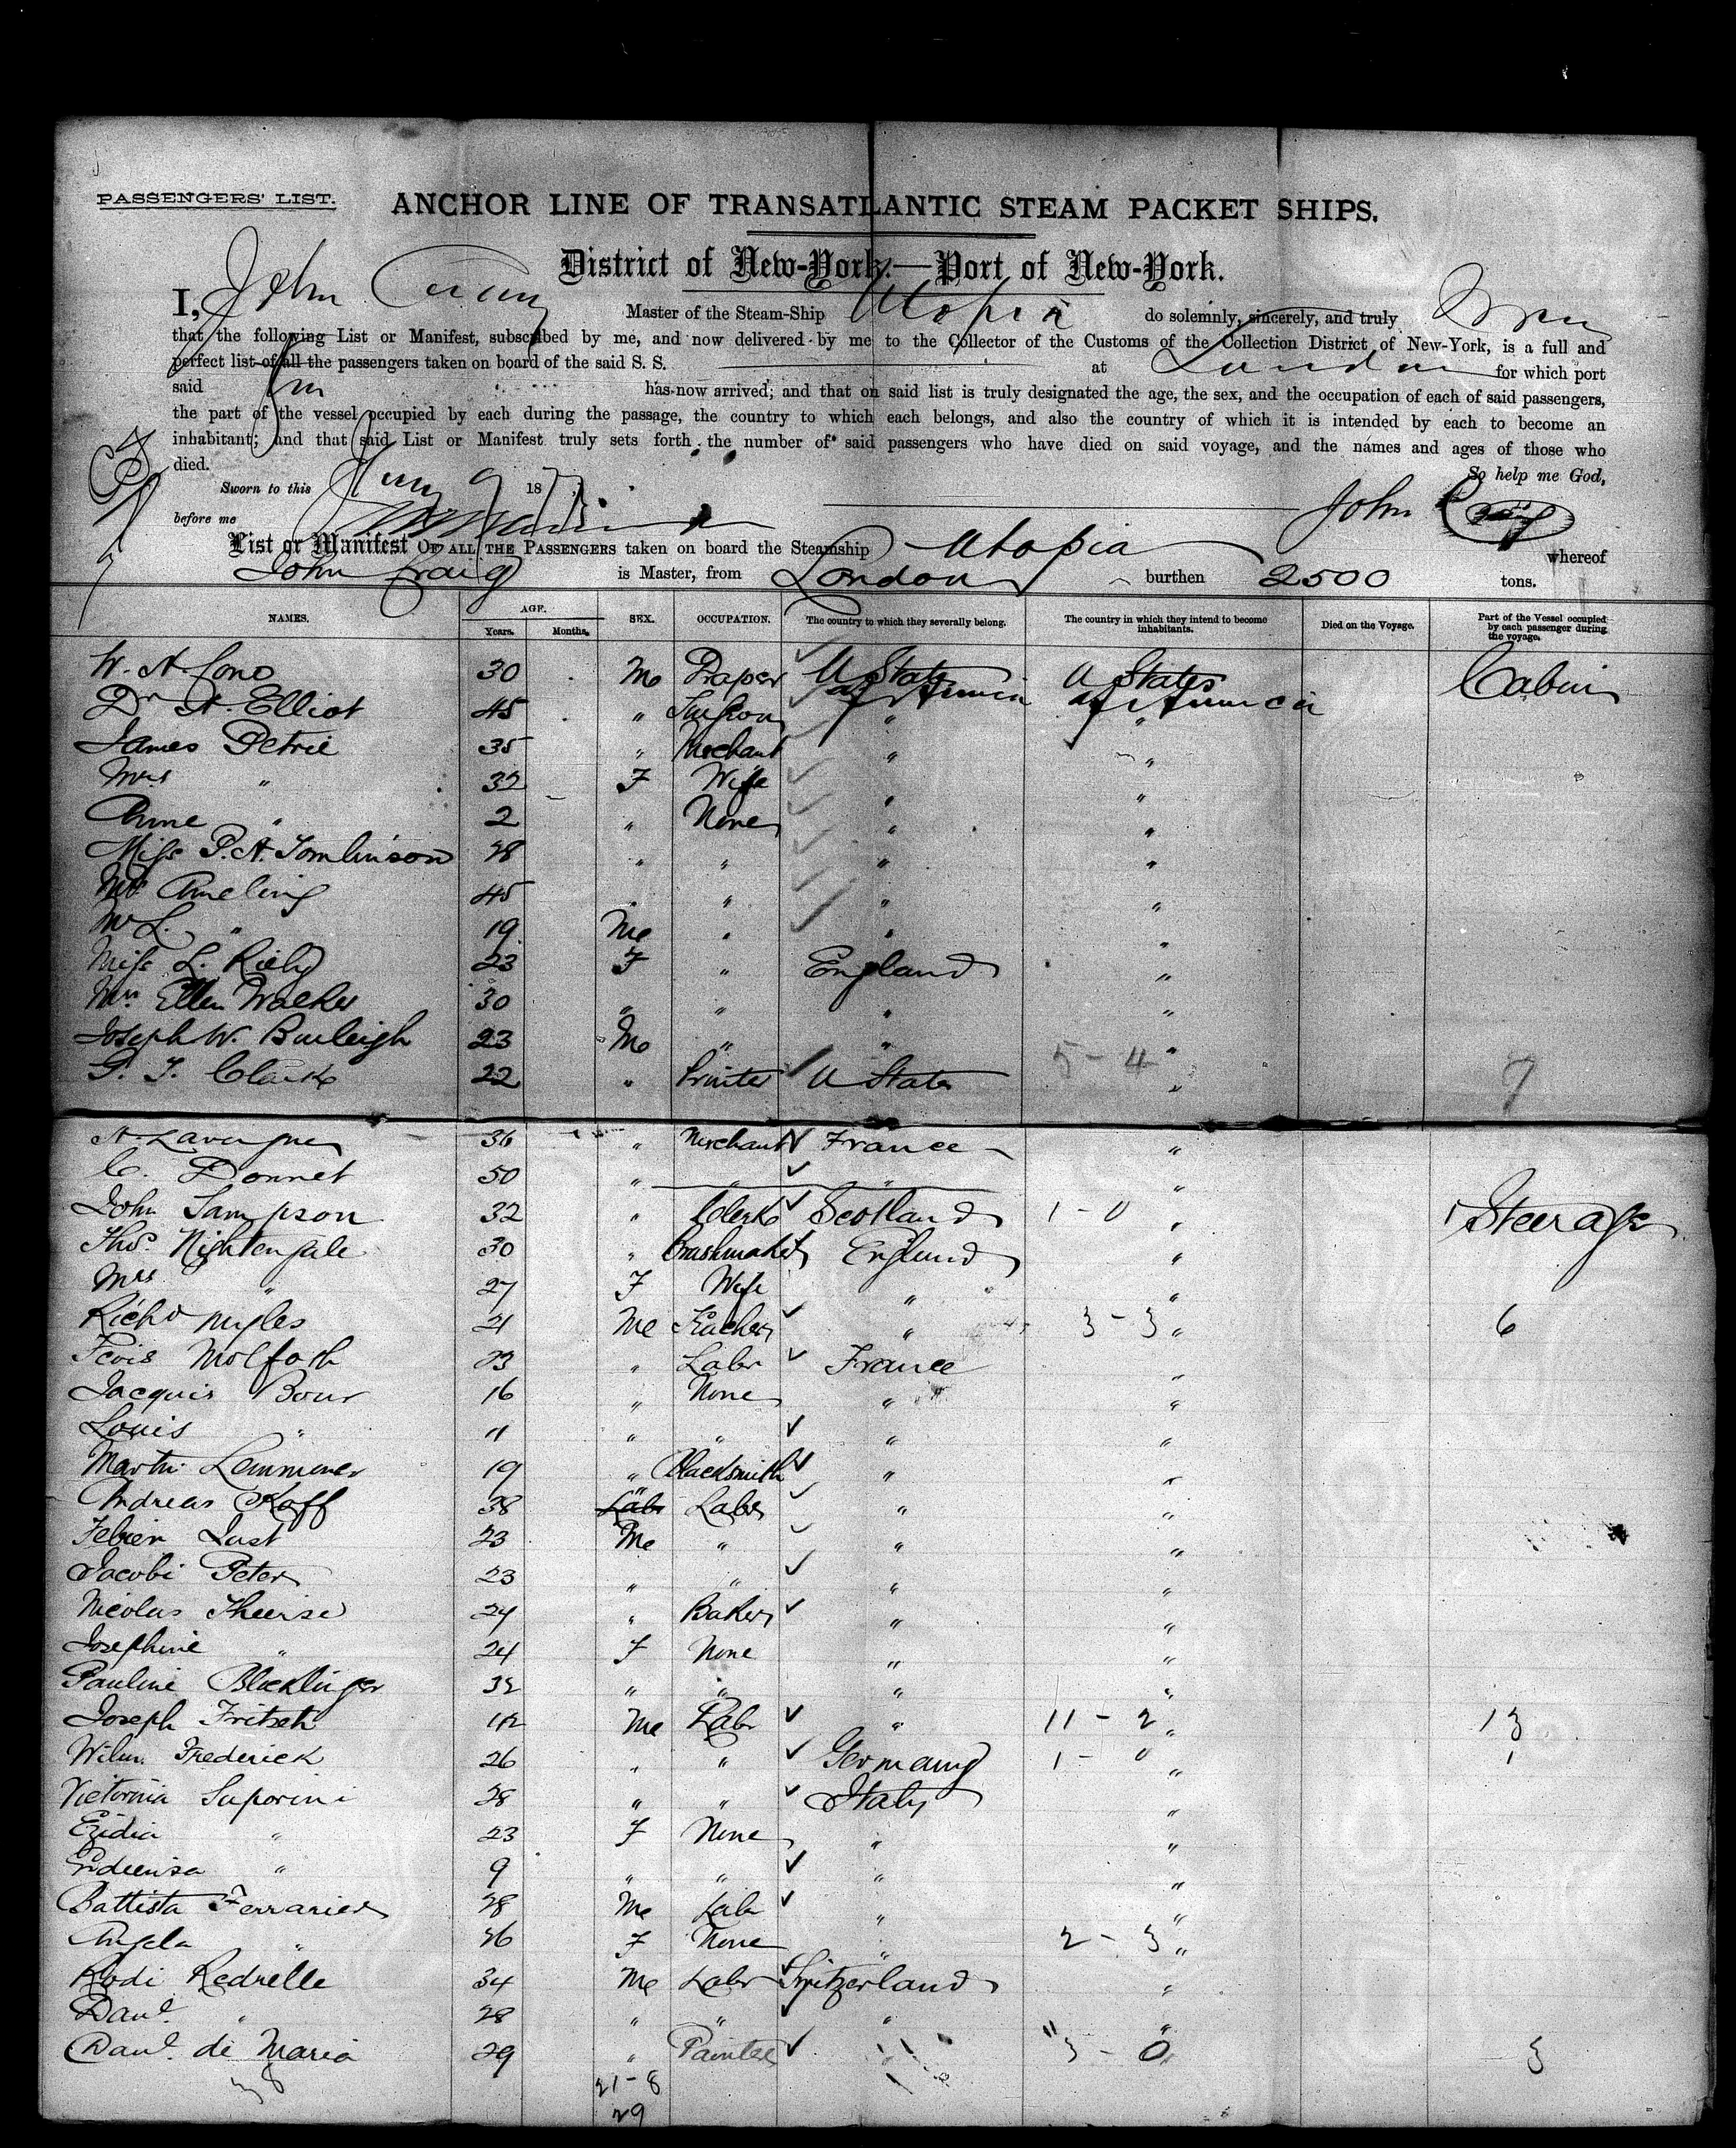 PASSENGERS' LIST.
ANCHOR LINE OF TRANSATLANTIC STEAM PACKET SHIPS.
District of New-York.—Port of New-York.
I, John Craig Master of the Steam-Ship Utopia do solemnly, sincerely, and truly Swear
that the following List or Manifest, subscribed by me, and now delivered by me to the Collector of the Customs of the Collection District of New-York, is a full and
perfect list of all the passengers taken on board of the said S. S. at London for which port
said has now arrived; and that on said list is truly designated the age, the sex, and the occupation of each of said passengers,
the part of the vessel occupied by each during the passage, the country to which each belongs, and also the country of which it is intended by each to become an
inhabitant; and that said List or Manifest truly sets forth the number of said passengers who have died on said voyage, and the names and ages of those who
died.
So help me God,
Sworn to this 9 187
before me
John Craig
List or Manifest OF ALL THE PASSENGERS taken on board the Steamship Utopia whereof
John Craig is Master, from London burthen 2500 tons.
NAMES. AGE. Years. Months. SEX. OCCUPATION. The country to which they severally belong. The country in which they intend to become inhabitants. Died on the Voyage. Part of the Vessel occupied by each passenger during the voyage.
W. A. Cono 30 M Draper U States of America U States of America Cabin
Dr A. Elliot 45 " Surgeon " "
James Petrie 35 " Merchant " "
Mrs " 32 F Wife " "
Anne " 2 " None " "
Miss P. A. Tomlinson 28 " " " "
Mrs Ameling 45 " " " "
Mr L. " 19 M " " "
Miss L. Riely 23 F " England "
Mrs Ellen Walker 30 " " " "
Joseph W. Burleigh 23 M " " 5 - 4 "
G. T. Clarke 22 " Printer U States " 7
A. Lavergne 36 " Merchant France "
C. Donnet 50 " " " "
John Sampson 32 " Clerk Scotland 1 - 0 " 1 Steerage
Thos. Nightengale 30 " Brushmaker England "
Mrs " 27 F Wife " "
Richd Myles 21 M Teacher " 3 - 3 " 6
Molfoth 23 " Labr France "
Jacquis Bour 16 " None " "
Louis " 11 " " " "
Martin Lemmener 19 " Blacksmith " "
Andreas Kaff 38 Labr Labr " "
Febien Just 23 M " " "
Jacobi Peter 23 " " " "
Nicolas Theerse 24 " Baker " "
Josephine " 24 F None " "
Pauline Blecklinger 32 " " " "
Joseph Fritsch 42 M Labr " 11 - 2 " 13
Wilm. Frederick 26 " " Germany 1 - 0 " 1
Victorina Saporini 28 " " Italy "
Ezidia " 23 F None " "
" 9 " " " "
Battista Ferrarier 28 M Labr " "
Angela " 26 F None " 2 - 3 "
Rodi Redrelle 34 M Labr Switzerland "
Danl. " 28 " " " "
Danl. di Maria 29 " Painter " 3 - 0 " 3
38
21 - 8
29